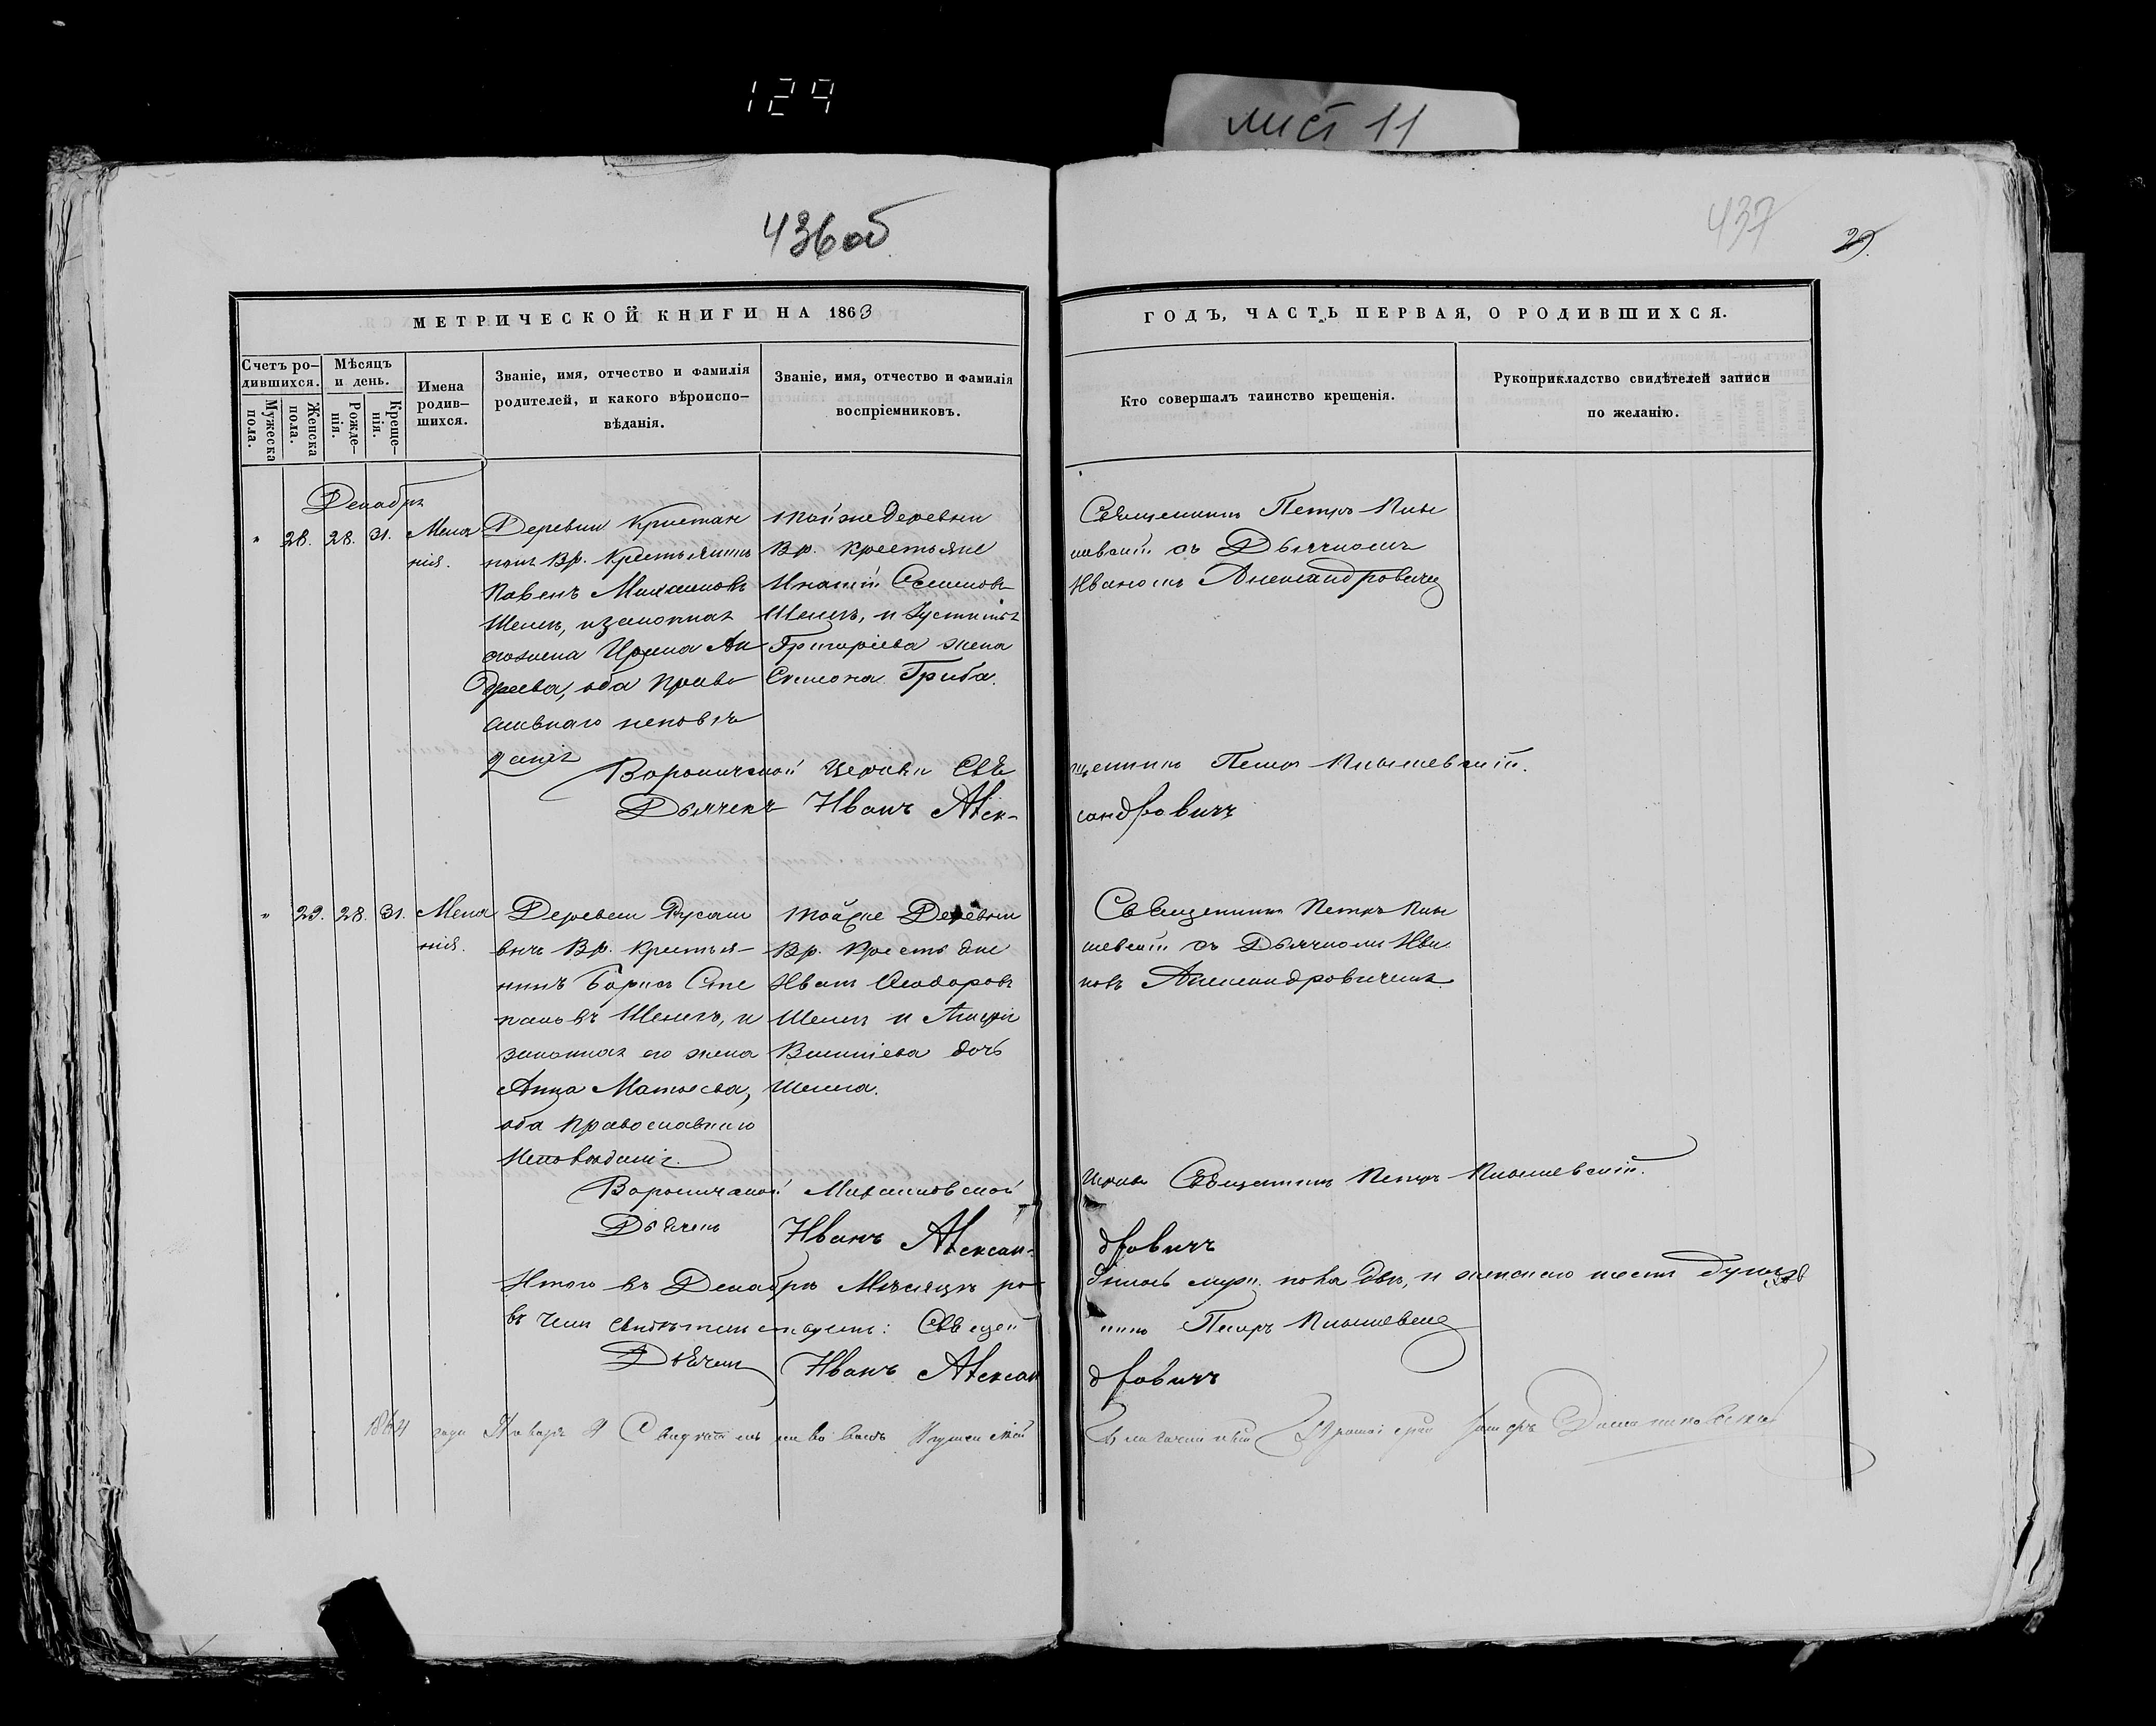 129
лист 11
436об
437
29.
МЕТРИЧЕСКОЙ КНИГИ НА 1863
ГОДЪ, ЧАСТЬ ПЕРВАЯ, О РОДИВШИХСЯ.
Счетъ ро-
дившихся.
Мужеска
пола.
Женска
пола.
Мѣсяцъ
и день.
Рожде-
нія.
Креще-
нія.
Имена
родив-
шихся.
Званіе, имя, отчество и фамилія
родителей, и какого вѣроиспо-
вѣданія.
Званіе, имя, отчество и фамилія
воспріемниковъ.
Кто совершалъ таинство крещенія.
Рукоприкладство свидѣтелей записи
по желанію.
Декабрь
" 28. 28. 31. Мела
нія.
Деревни
Вр. Крестьянинъ
Павелъ
Шелегъ, и законная
его жена Ан
дреева, оба Право
славнаго исповѣ
данія
той же деревни
Вр. Крестьяне
Игнатій Семеновъ
Шелегъ, и Іустинія
Григорьева жена
Симона Гриба.
Священникъ Петръ
съ Дьячкомъ
Иваномъ Александровичемъ
Вороничской Церкви Свя
щенникъ Петръ
Дьячекъ Иванъ Алек-
сандровичъ
" 29. 28. 31. Мела
нія.
Деревни Русаки
вичъ Вр. Крестья-
нинъ Борисъ Сте
пановъ Шелегъ, и
законная его жена
Анна Матвеева,
оба Православнаго
Исповѣданія.
той же Деревни
Вр. Крестьяне
Иванъ Ѳеодоровъ
Шелегъ и
дочь
Шелега.
Священникъ Петръ
съ Дьячкомъ Ива
номъ Александровичемъ
Вороничской
Церкви Священникъ Петръ
Дьячекъ Иванъ Алексан-
дровичъ
Итого въ Декабрѣ Мѣсяцѣ ро
дилось муж. пола два, и женскаго шесть душъ
въ чемъ свидѣтельствуемъ: Священ
никъ Петръ
Дьячекъ Иванъ Алексан
дровичъ
1864 года Января 9 Свидѣтельствовалъ
Благочинный Протоіерей